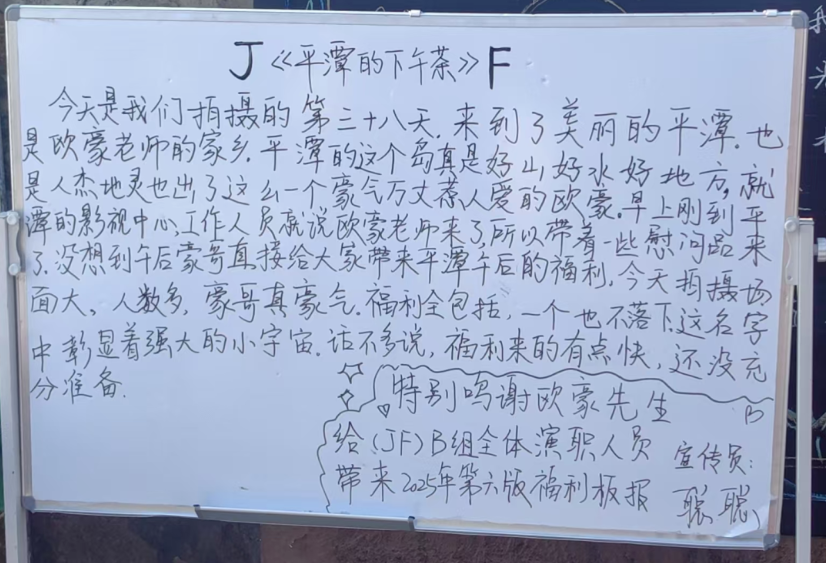 J《平潭的下午茶》F
今天是我们拍摄的第三十八天,来到了美丽的平潭.也
是欧豪老师的家乡,平潭的这个岛真是好山好水好地方,就
是人杰地灵也出了这么一个豪气万丈惹人爱的欧豪.早上刚到平
潭的影视中心,工作人员就说欧豪老师来了,所以带着一些慰问品来
了.没想到午后豪哥直接给大家带来平潭午后的福利,今天拍摄场
面大。人数多,豪哥真豪气.福利全包括,一个也不落下.这名字
中彰显着强大的小宇宙.话不多说,福利来的有点快,还没充
分准备.
特别鸣谢欧豪先生
B
给(JF)B组全体演职人员
带来2025年第六版福利板报
宣传员:
聪聪